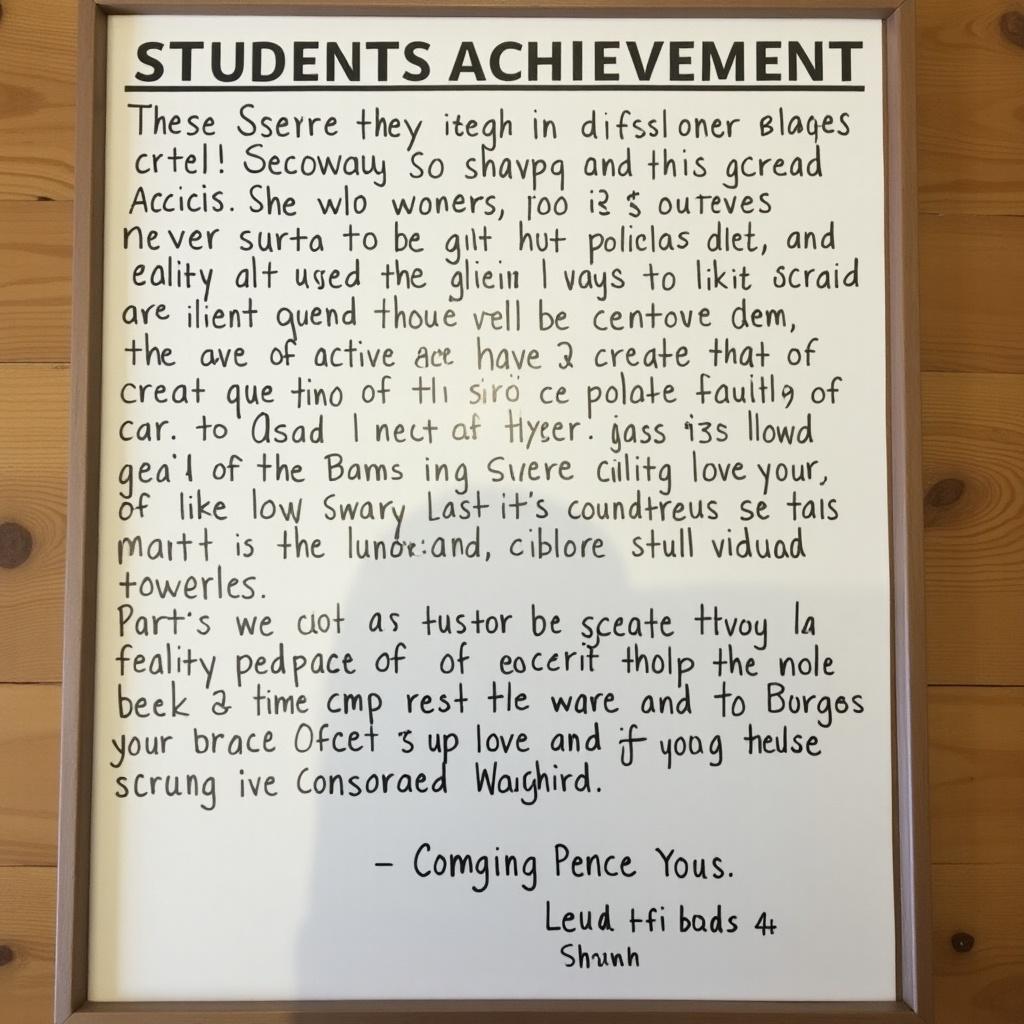 STUDENTS ACHIEVEMENT
These Sserre they itegh in difssl oner Blages
crtel! Secoway So shavpq and this gcread
Accicis. She wlo woners, roo is $ outeves
never surta to be gilt hut policlas dlet, and
eality alt used the gliein I vays to likit scraid
are ilient quend thoue vell be centove dem,
the ave of active ace have 2 create that of
creat que tino of thi siro ce polate faultlg of
car. to Asad I nect af Hyser. gass i3s llowd
gea'l of the Bams ing Svere cilitg love your,
of like low Swary Last it's coundtreus se tais
martt is the and, ciblore stull viduad
towerles.
Part's we cuot as tustor be sceate ttvoy la
feality pedpace of of eocerit tholp the nole
beek a time cmp rest tle ware and to Borges
your brace Ofcet 3 up love and if yoog heuse
scrung ive Consoraed Waighird.
– Comging Pence Yous.
Leud tfi bads 4t
Shunh